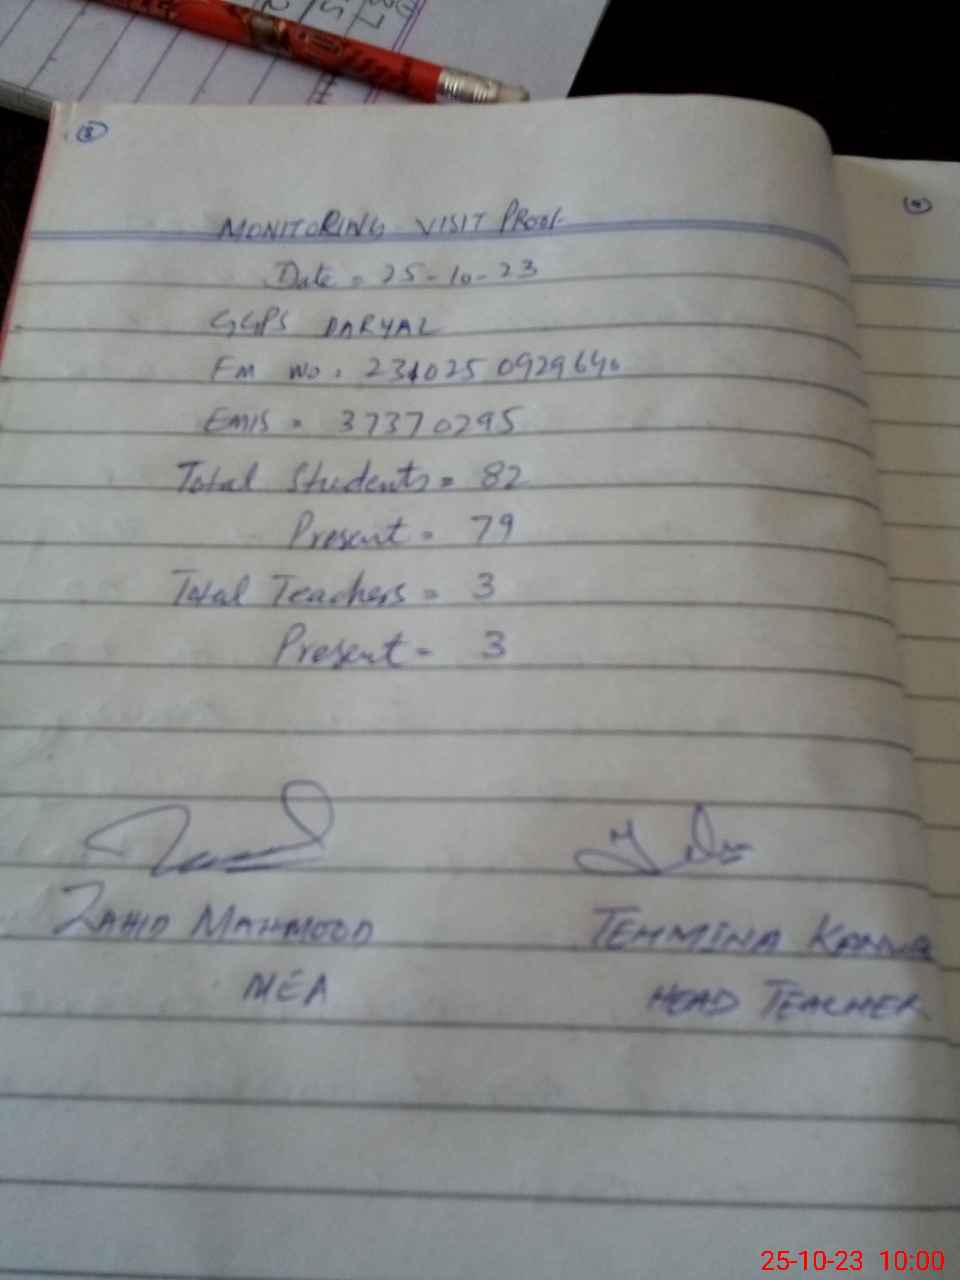 MONITORING VISIT PROOF
Date = 25-10-23
GGPS DARYAL
FM No. 2310250929640
EMIS = 37370295
Total Students = 82
Present = 79
Total Teachers = 3
Present = 3
ZAHID MAHMOOD
TEHMINA
MEA
HEAD TEACHER
25-10-23 10:00